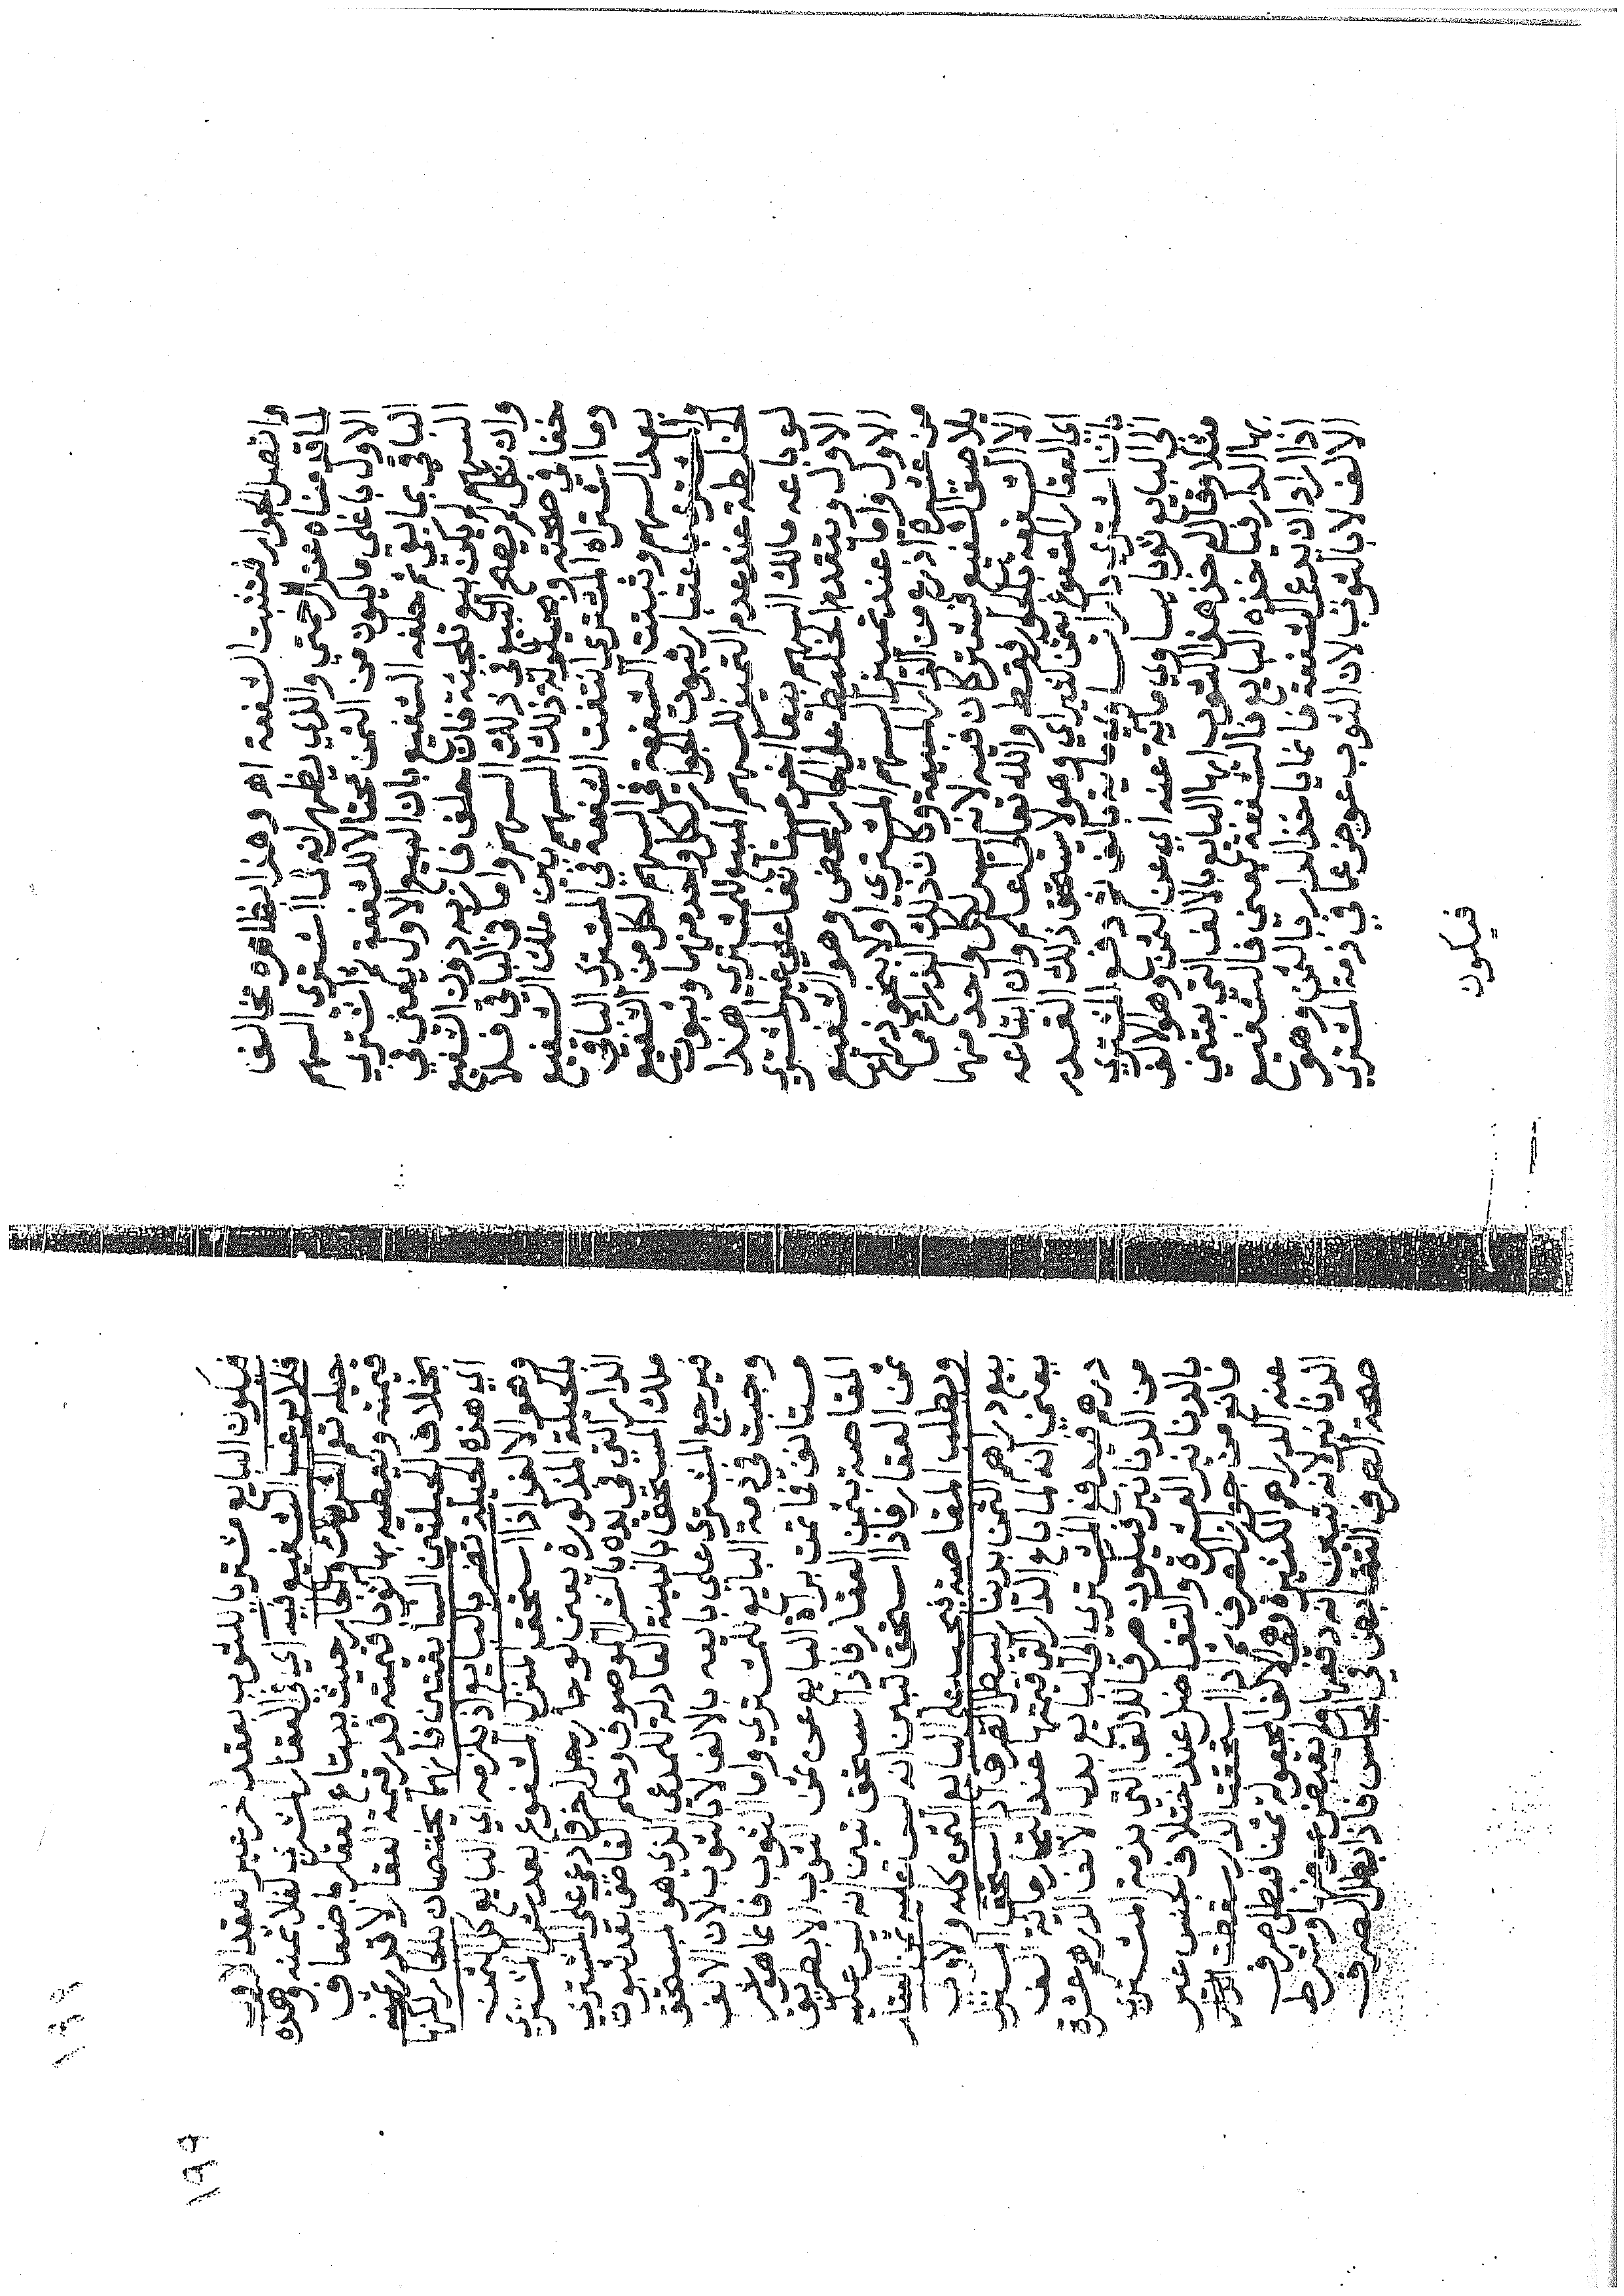 واتصل الجوار فتثبت الشفعة اهـ وهذا بظاهره مخالف
لما قدمناه عن الرحمتي والذي يظهر انه لما اشترى السهم
الاول باغلى ما يكون من الثمن محتالا للشفعة ثم اشترى
الباقي بما بقي ثم حلفه الشفيع بان البيع الاول يعني في
السهم لم يكن بيع تلجئة فان حلف فاز به دون الشفيع
وان نكل لم يصح البيع في ذلك السهم واما في الباقي فلا
خفا في صحته وحيلولة ذلك السهم بين ملك الشفيع
وما اشتراه المشتري انتفت الشفعة في المشترى الباقي
بعد السهم وثبتت الشفعة في السهم لكل من الشفيع
والمشتري باعتبار ثبوت الجوار لكل واحد منهما وثبوت
خلطة عند عدم التمييز للسهم المبيع للمشتري هذا
لو باعه مالك السهم بيعا اخر مستانفا على غير المشتري
الاول وتقدم الخليط على الجار المحض وهو الشفيع
الاول واما عند تمييز السهم المشترى اولا بنحو ذراعين
من عشرة اذرع من الدار المبيعة وكان ذلك الذراع مما
يلاصق الشفيع فيشتركان فيه لانه ليس لكل واحد منهما
الا الشفعة بالجوار فقط والله تعالى اعلم وان ابتاعه
اي العقار المشفوع بثمن كثير اي وهو لا يستحق ذلك القدر
بان اشترى دارا تساوي مائة بالف ثم دفع المشتري
الى البايع ثوبا يساوي مائة عنه اي عن الثمن وهو الالف
مثلا وقال له خذ هذا الثوب ايها البايع بالالف التي بعتني
بها الدار فياخذه البايع فالشفعة يعني فالشفيع
اذا اراد ان يدعي الشفعة فانما ياخذ الدار بالثمن وهو
الالف لا بالثوب لان الثوب عوض عما في ذمة المشتري
فيكون
فيكون البايع مشتريا للثوب بعقد اخر غير العقد الاول
فلا يرغب الشفيع فيه اي في العقار المشترى لغلا ثمنه وهذه
حيلة تعم الشريك والجار حيث يبتاع العقار باضعاف
قيمته ويعطيه بها ثوبا قيمته قدر قيمة العقار لا قدر ثمنه
بخلاف الحيلتين السابقتين فانهما يختصان بالجار لكنها
اي هذه الحيلة تضر بالبايع اذ يلزمه اي البايع كل الثمن
وهو الالف اذا استحق المنزل المشفوع بعد شرا المشتري
بالحيلة المذكورة يعني لو جا رجل اخر فادعى على المشتري
الدار التي في يده بالشرا الموصوف وحكم القاضي بعد ثبوت
ملك المستحق بالبينة العادلة للمدعي الذي هو المستحق
فيرجع المشتري على بايعه بالالف لا بالثوب لان الالف
وجبت في ذمة البايع للمشتري واما الثوب فانما هو بثمن
مستانف فانما تمت براة البايع عن ثمن الثوب الا بطريق
المقاصة بثمن العقار فاذا استحق تبين انه ليس عليه
ثمن العقار فاذا استحق تبين انه ليس عليه ثمن العقار
وبطلت المقاصة فيجب على البايع الثمن كله والاولى
بيع دراهم الثمن بدينار ليبطل الصرف اذا استحق المشترى
يعني انه لما باع الدار التي قيمتها عند التجار مائة الف
درهم فيدفع المشتري الى البايع بدل الالف الدرهم عشرة
من الدنانير فيكون صرفا للالف التي بذمة المشتري
بالدنانير العشرة والتفاضل عند اختلاف الجنس غير
مانع من جواز الصرف فاذا استحقت الدار سقطت
عنه الدراهم الكثيرة وهي الالف المجعولة ثمنا فبطل صرف
الدنانير لانه تبين انه دفعها ولم يقبض عوضها وشرط
صحة الصرف التقابض في المجلس فاذا بطل الصرف
١٩٩